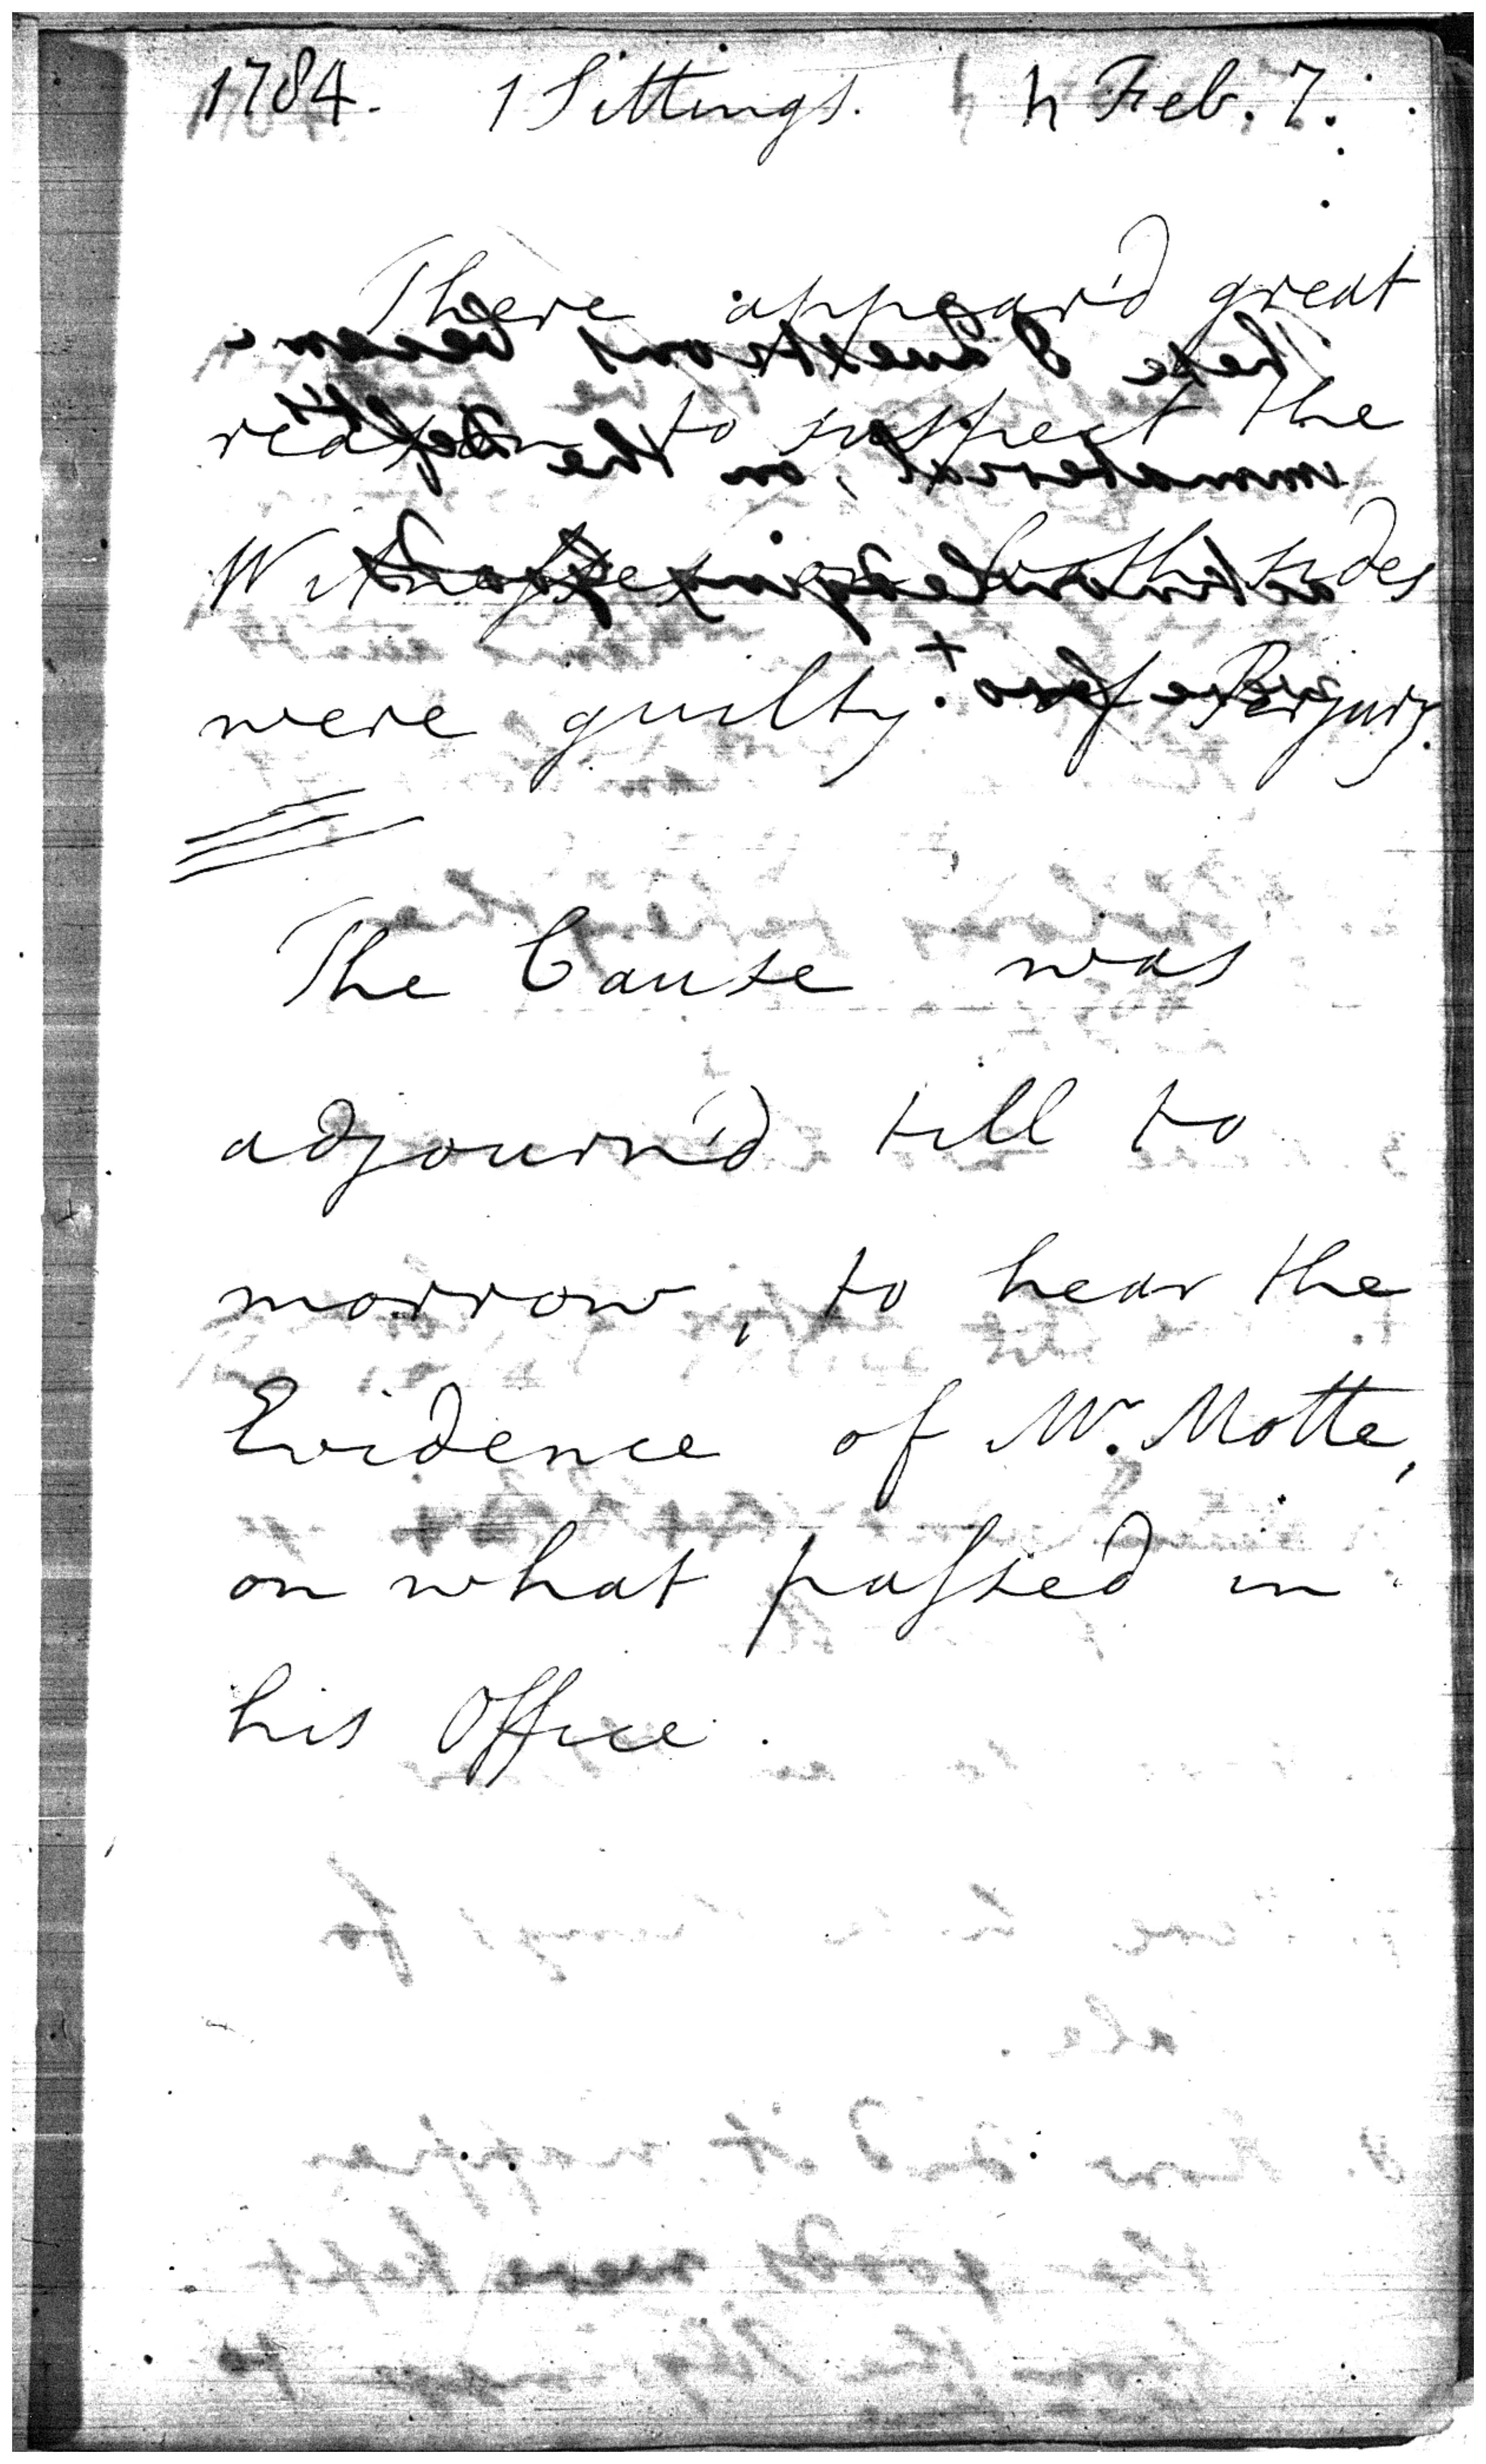 1784. 1 Sittings. ♄ Feb. 7.
There appear'd great
reason to suspect the
Witnesses on both sides
were guilty of Perjury.
The Cause was
adjourn'd till to
morrow, to hear the
Evidence of Mr. Motte,
on what passed in
his Office.